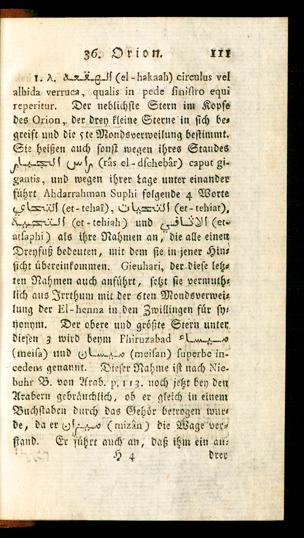 36. Orion. 111
1. λ. الهقعة (el-hakaah) circulus vel
albida verruca, qualis in pede ſiniſtro equi
reperitur. Der neblichſte Stern im Kopfe
des Orion, der drey kleine Sterne in ſich be-
greift und die 5te Mondsverweilung beſtimmt.
Sie heißen auch ſonſt wegen ihres Standes
راس الجبار (râs el-dſchebâr) caput gi-
gantis, und wegen ihrer Lage unter einander
führt Abdarrahman Suphi folgende 4 Worte
التحاي (et-tehaï), التحيات (et-tehiat),
التحية (et-tehiah) und الاثافي (et-
atſaphi) als ihre Nahmen an, die alle einen
Dreyfuß bedeuten, mit dem ſie in jener Hin-
ſicht übereinkommen. Gieuhari, der dieſe letz-
ten Nahmen auch anführt, ſetzt ſie vermuth-
lich aus Irrthum mit der 6ten Mondsverwei-
lung der El-henna in den Zwillingen für ſy-
nonym. Der obere und größte Stern unter
dieſen 3 wird beym Phiruzabad ميساء
(meiſa) und ميسان (meiſan) ſuperbo in-
cedens genannt. Dieſer Nahme iſt nach Nie-
buhr B. von Arab. p. 113. noch jetzt bey den
Arabern gebräuchlich, ob er gleich in einem
Buchſtaben durch das Gehör betrogen wur-
de, da er ميزان (mizân) die Wage ver-
ſtand. Er führt auch an, daß ihm ein an-
H 4 drer